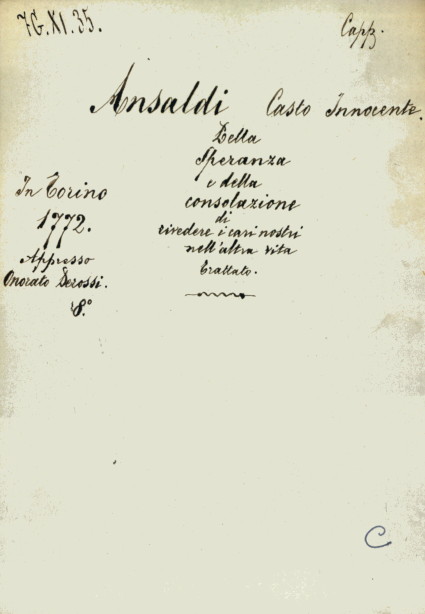 7G.XI.35.
Capp.
Ansaldi Casto Innocente.
Della
Speranza
e della
consolazione
di
rivedere i cari nostri
nell'altra vita
Trattato.
In Torino
1772.
Appresso
Onorato Derossi.
8.º
C